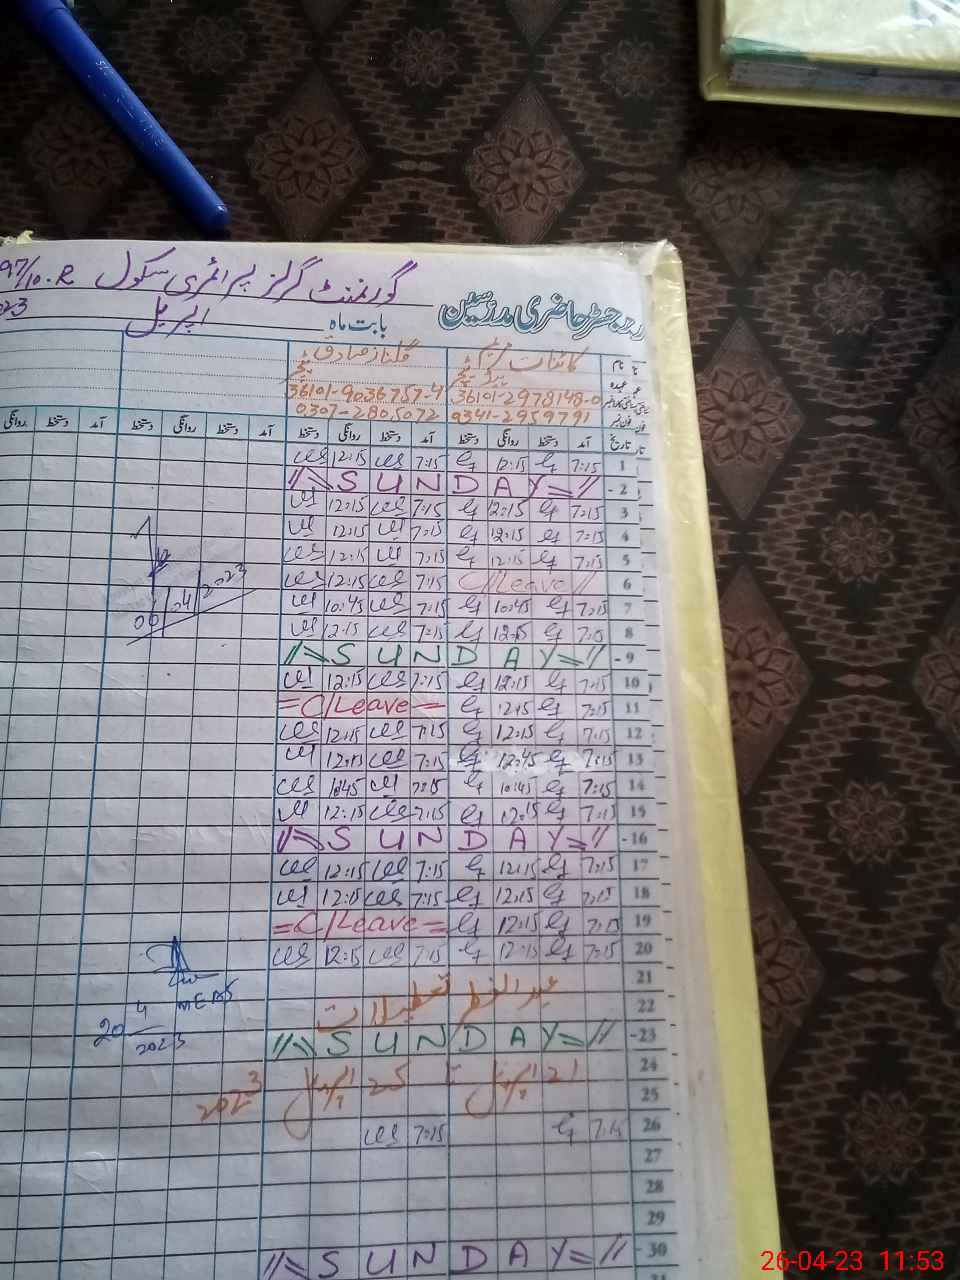 گورنمنٹ گرلز پرائمری سکول 97/10.R
رجسٹر حاضری مدرسین بابت ماہ اپریل 023
نام کائنات مریم گلناز صادق
عہدہ ہیڈ ٹیچر ٹیچر
36101-2978148-0 36101-9036757-4
0341-2959791 0307-2805072
تاریخ آمد دستخط روانگی دستخط آمد دستخط روانگی دستخط آمد دستخط روانگی دستخط آمد دستخط روانگی
1 7:15 12:15 7:15 12:15
- 2 // = S U N D A Y = //
3 7:15 12:15 7:15 12:15
4 7:15 12:15 7:15 12:15
5 7:15 12:15 7:15 12:15
6 C/Leave // 7:15 12:15
7 7:15 10:45 7:15 10:45
8 7:15 12:15 7:15 12:15
06/04/2023
- 9 // = S U N D A Y = //
10 7:15 12:15 7:15 12:15
11 7:15 12:15 = C/Leave =
12 7:15 12:15 7:15 12:15
13 7:15 12:45 7:15 12:15
14 7:15 10:45 7:15 10:45
15 7:15 12:15 7:15 12:15
- 16 // = S U N D A Y = //
17 7:15 12:15 7:15 12:15
18 7:15 12:15 7:15 12:15
19 7:15 12:15 = C/Leave =
20 7:15 12:15 7:15 12:15
21
22 عید الفطر تعطیلات
20 4 2023
- 23 // = S U N D A Y = //
24 21 اپریل تا 25 اپریل 2023
25
26 7:15 7:15
27
28
29
- 30 // = S U N D A Y = //
31
26-04-23 11:53